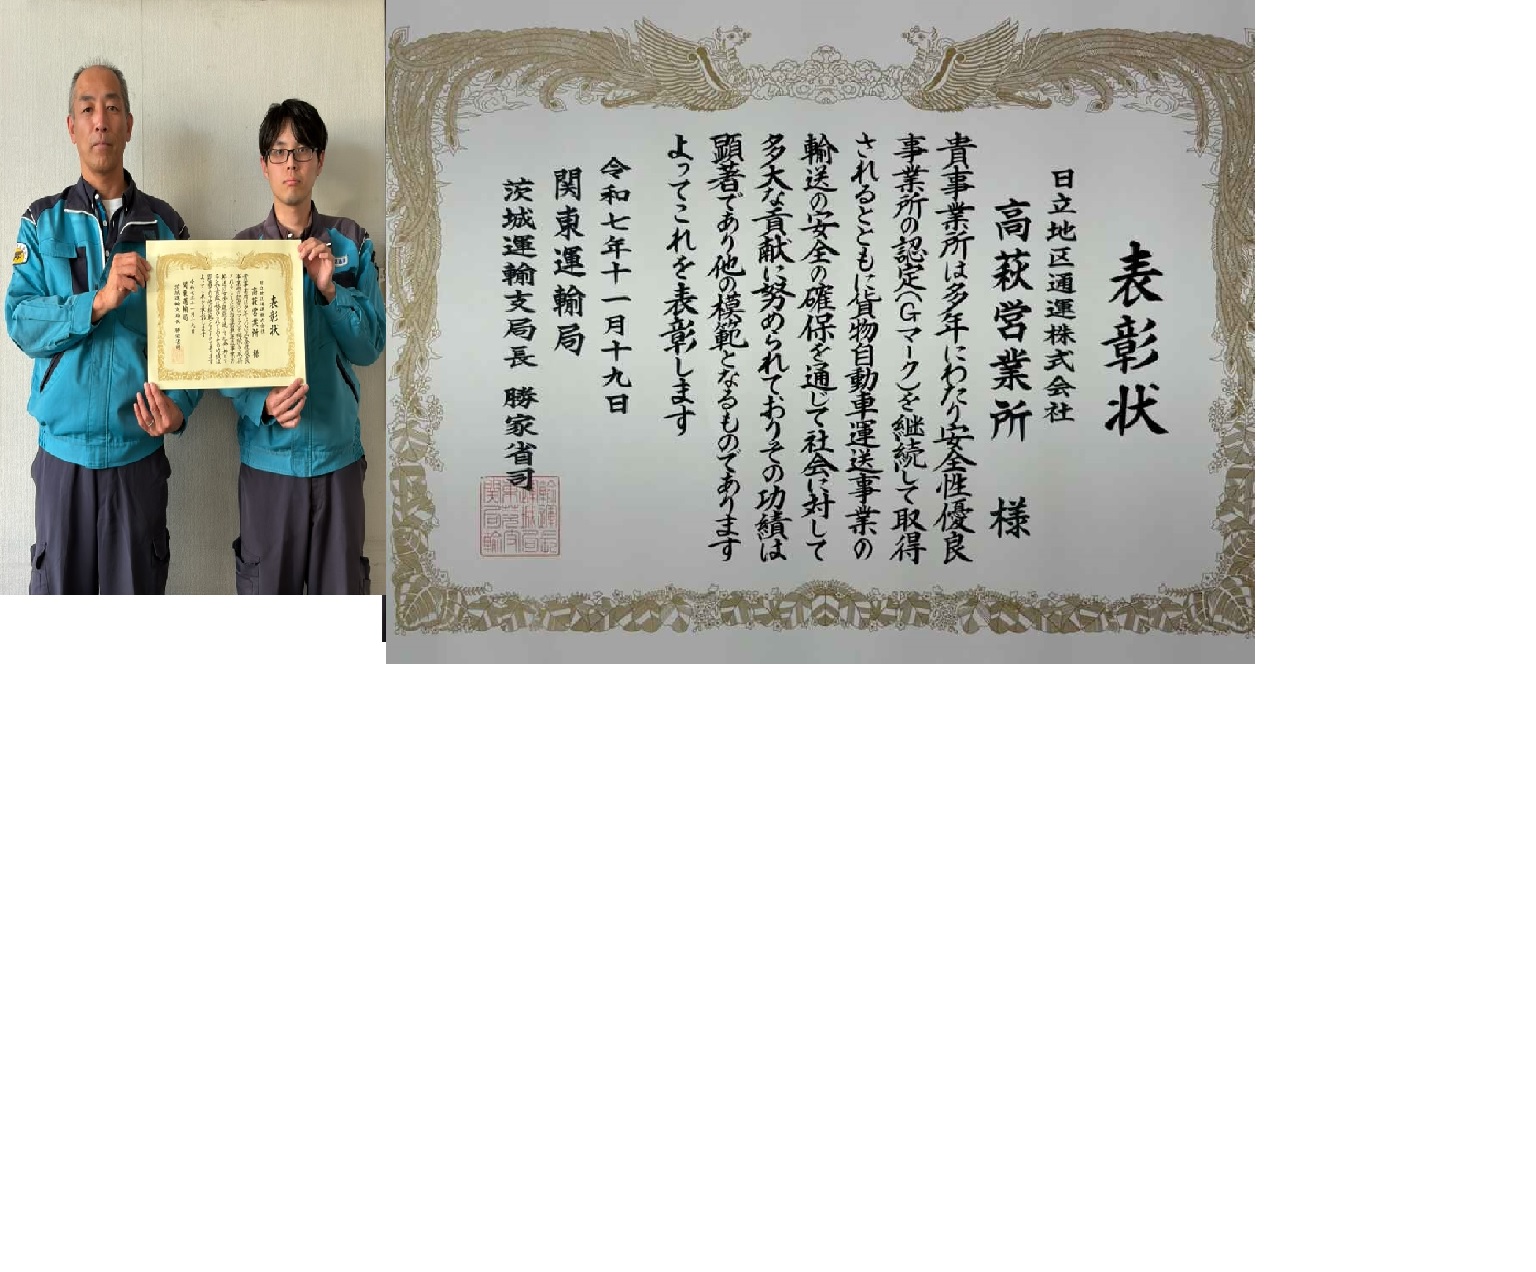 表彰状
日立地区通運株式会社
高萩営業所 様
貴事業所は多年にわたり安全性優良
事業所の認定(Gマーク)を継続して取得
されるとともに貨物自動車運送事業の
輸送の安全の確保を通じて社会に対して
多大な貢献に努められておりその功績は
顕著であり他の模範となるものであります
よってこれを表彰します
令和七年十一月十九日
関東運輸局
茨城運輸支局長 勝家省司